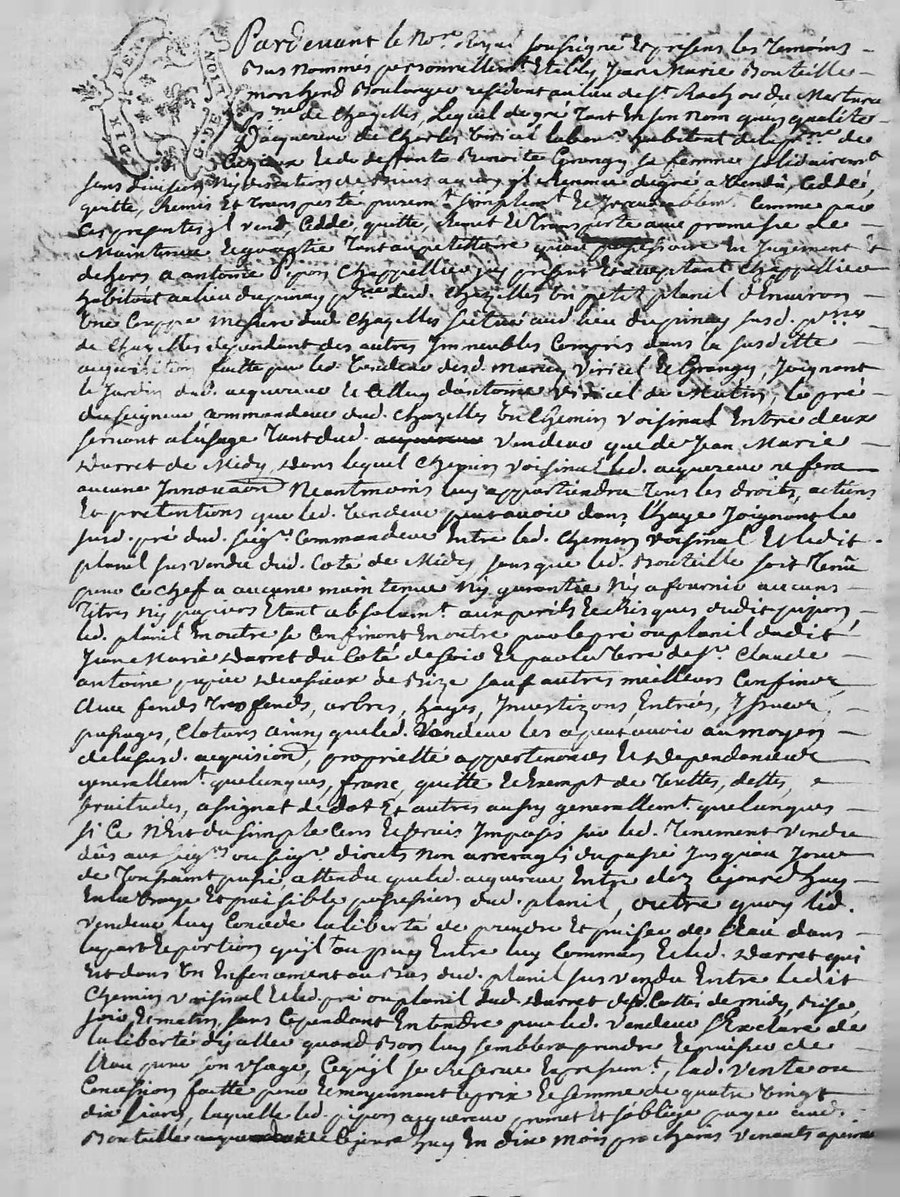 Pardevant le No.re Royal soussigné Et presens les Temoins
Bas nommés personnellemt Etably Jean Marie Bouteille
marchand Boulanger residant au lieu de St
p.sse de Chazelles, Lequel de gré Tant En son nom qu'en qualité
D'acquereur de Charles Viricel labour. habitant de la p.sse de
Et de deffunte Benoite Grangy sa femme solidairemt
sans division Ny discution de Biens a vendu, Ceddé,
quitté, Remis Et Transporté puremt simplemt Et Irrevocablemt Comme par
Ces presentes Il vend, Cedde, quitte, Remet Et Transporte avec promesse de
Maintenir Et garantir Tant au petittoire qu'au possessoire En Jugement Et
dehors, a antoine Pupon Chappellier icy present Et acceptant Chappellier
habitant au lieu du pinay p.sse dud. Chazelles Un petit planil d'Environ
Une Couppe mesure dud. Chazelles scittué aud. lieu du pinay susd. p.sse
de Chazelles dependant des autres Immeubles Compris dans la susditte
acquisition faitte par led. Vendeur desd. mariés Viricel Et Grangy, Joignant
le Jardin dud. acquereur Et Celluy d'antoine Viricel de Matin, le pré
du seigneur Commandeur dud. Chazelles Un Chemin Voisinal Entre deux
servant a l'usage Tant dud. Vendeur que de Jean Marie
Darret de Midy, Dans lequel Chemin Voisinal led. acquereur ne fera
aucune Innovation Neantmoins luy appartiendra Tous les droits, actions
Et pretentions que led. Vendeur peut avoir dans l'haye Joignant le
susd. pré dud. seigr. Commandeur Entre led. Chemin Voisinal Et ledit
planil susvendu dud. Coté de Midy, sans que led. Bouteille soit Tenu
pour Ce chef a aucune maintenue Ny garantie Ny a fournir aucuns
Titres Ny papiers Etant absolumt aux perils Et Risques dudit pupon,
led. planil En outre se Confinant En outre par le pré ou planil dudit
Jean Marie Darret du Coté de soir Et par la Terre de Sr. Claude
antoine de Bize sauf autres meilleurs Confins
avec fonds Trefonds, arbres, hayes, Investizons, Entrées, Issues,
passages, Clotures ainsy que led. Vendeur les a peut avoir au moyen
de la susd. acquision, proprietté appartenances Et dependances
generallemt quelconques, franc, quitte Et Exempt de Dettes,
servitudes, assignat de dot Et autres aussy generallemt quelconques
si Ce N'est du simple Cens Et servis Imposés sur led. Tenement Vendu
dûs aux seigr. ou seigr. directs Non arreragés du passé Jusqu'au Jour
de Toussaint passé, attendu que led. acquereur Entre dez Cejourd'huy
En la Vraye Et paisible possession dud. planil, outre quoy led.
Vendeur luy Concede la liberté de prendre Et puiser de l'Eau dans
la part Et portion qu'il a au puy Entre luy Commun Et led. Darret qui
Est dans Un Enfoncement au Bas dud. planil susvendu Entre ledit
Chemin Voisinal Et led. pré ou planil dud. Darret de Midy, Bise,
soir, Et matin, sans Cependant Entendre par led. Vendeur s'Exclure de
la liberté d'y aller quand Bon luy semblera prendre Et puiser de
l'Eau pour son Usage, Ce qu'il se Reserve Expressemt, lad. Vente ou
Concession faitte pour Et moyennant le prix Et somme de quatre Vingt
dix Livres, laquelle led. pupon acquereur promet Et s'oblige payer aud.
Bouteille Cejourd'huy En dix mois prochains Venants a peine